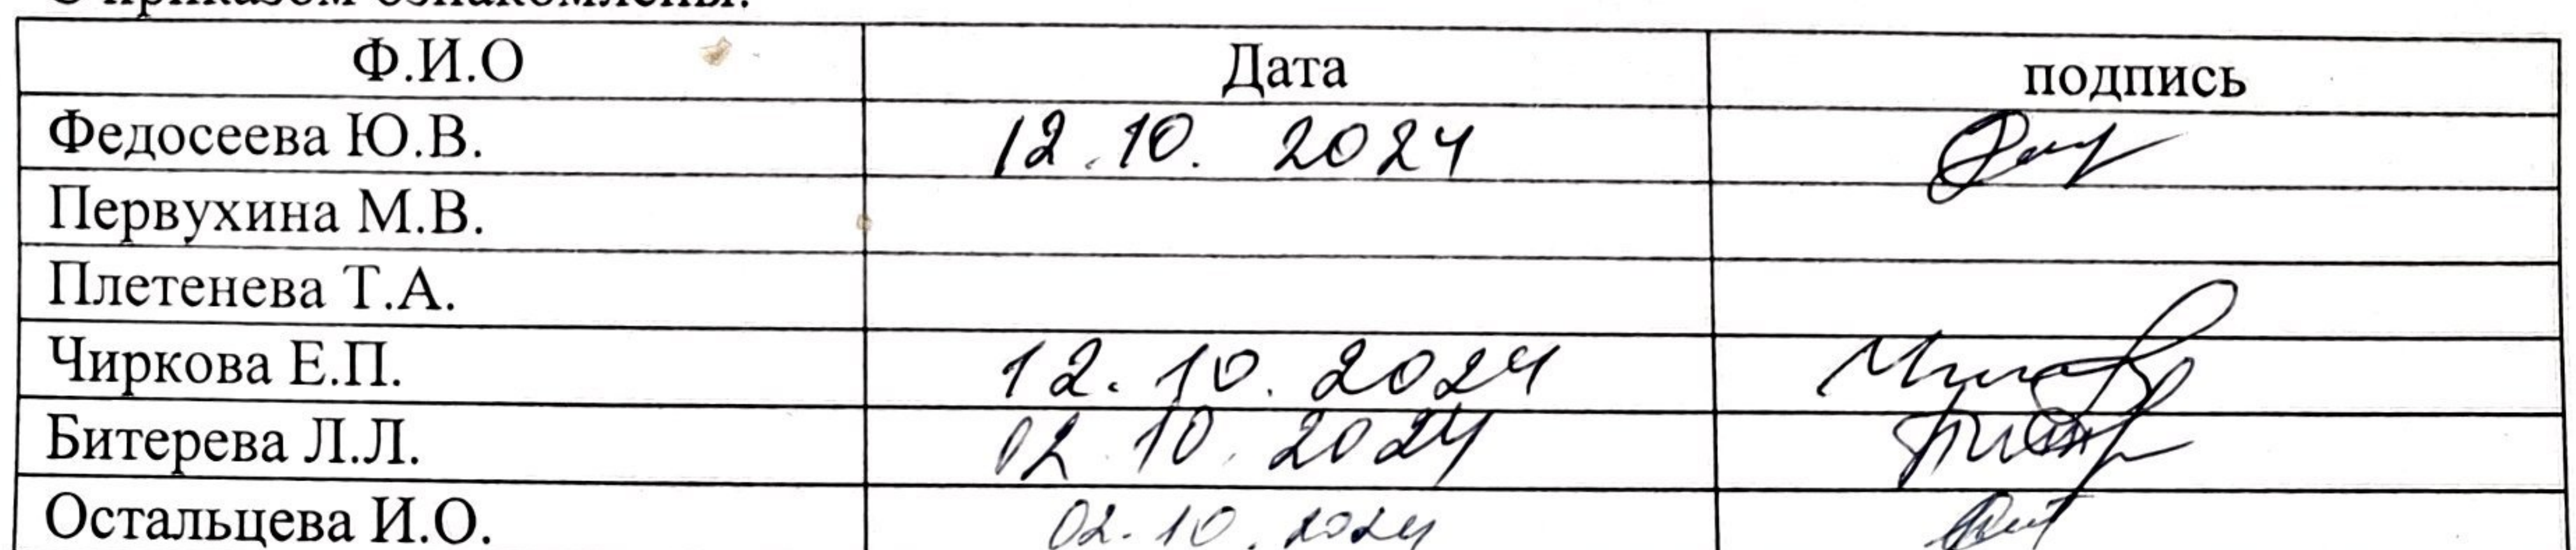 С приказом ознакомлены:
Ф.И.О Дата подпись
Федосеева Ю.В. 12.10.2024
Первухина М.В.
Плетенева Т.А.
Чиркова Е.П. 12.10.2024
Битерева Л.Л. 02.10.2024
Остальцева И.О. 02.10.2024